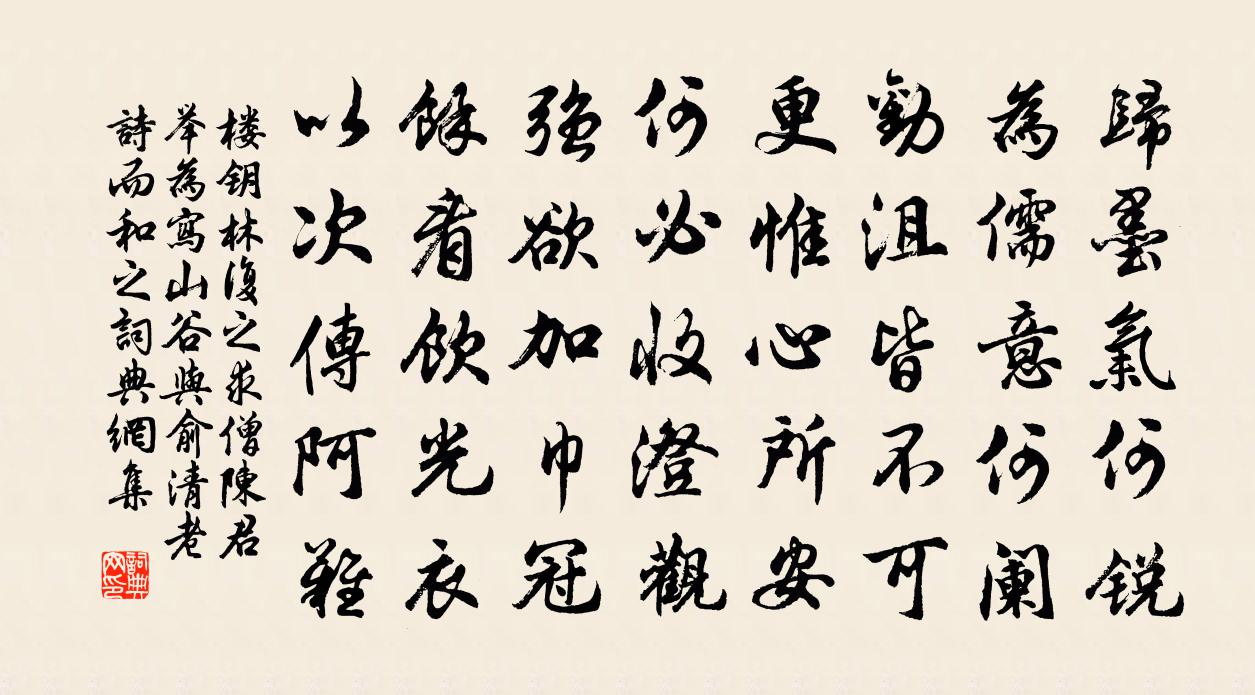 歸墨氣何锐
為儒意何阑
勸沮皆不可
更惟心所安
何必收澄觀
强欲加巾冠
餘看飲光衣
以次傳阿難
楼钥林復之求僧陳君
举為寫山谷與俞清老
詩而和之詞典網集
詞典
网印